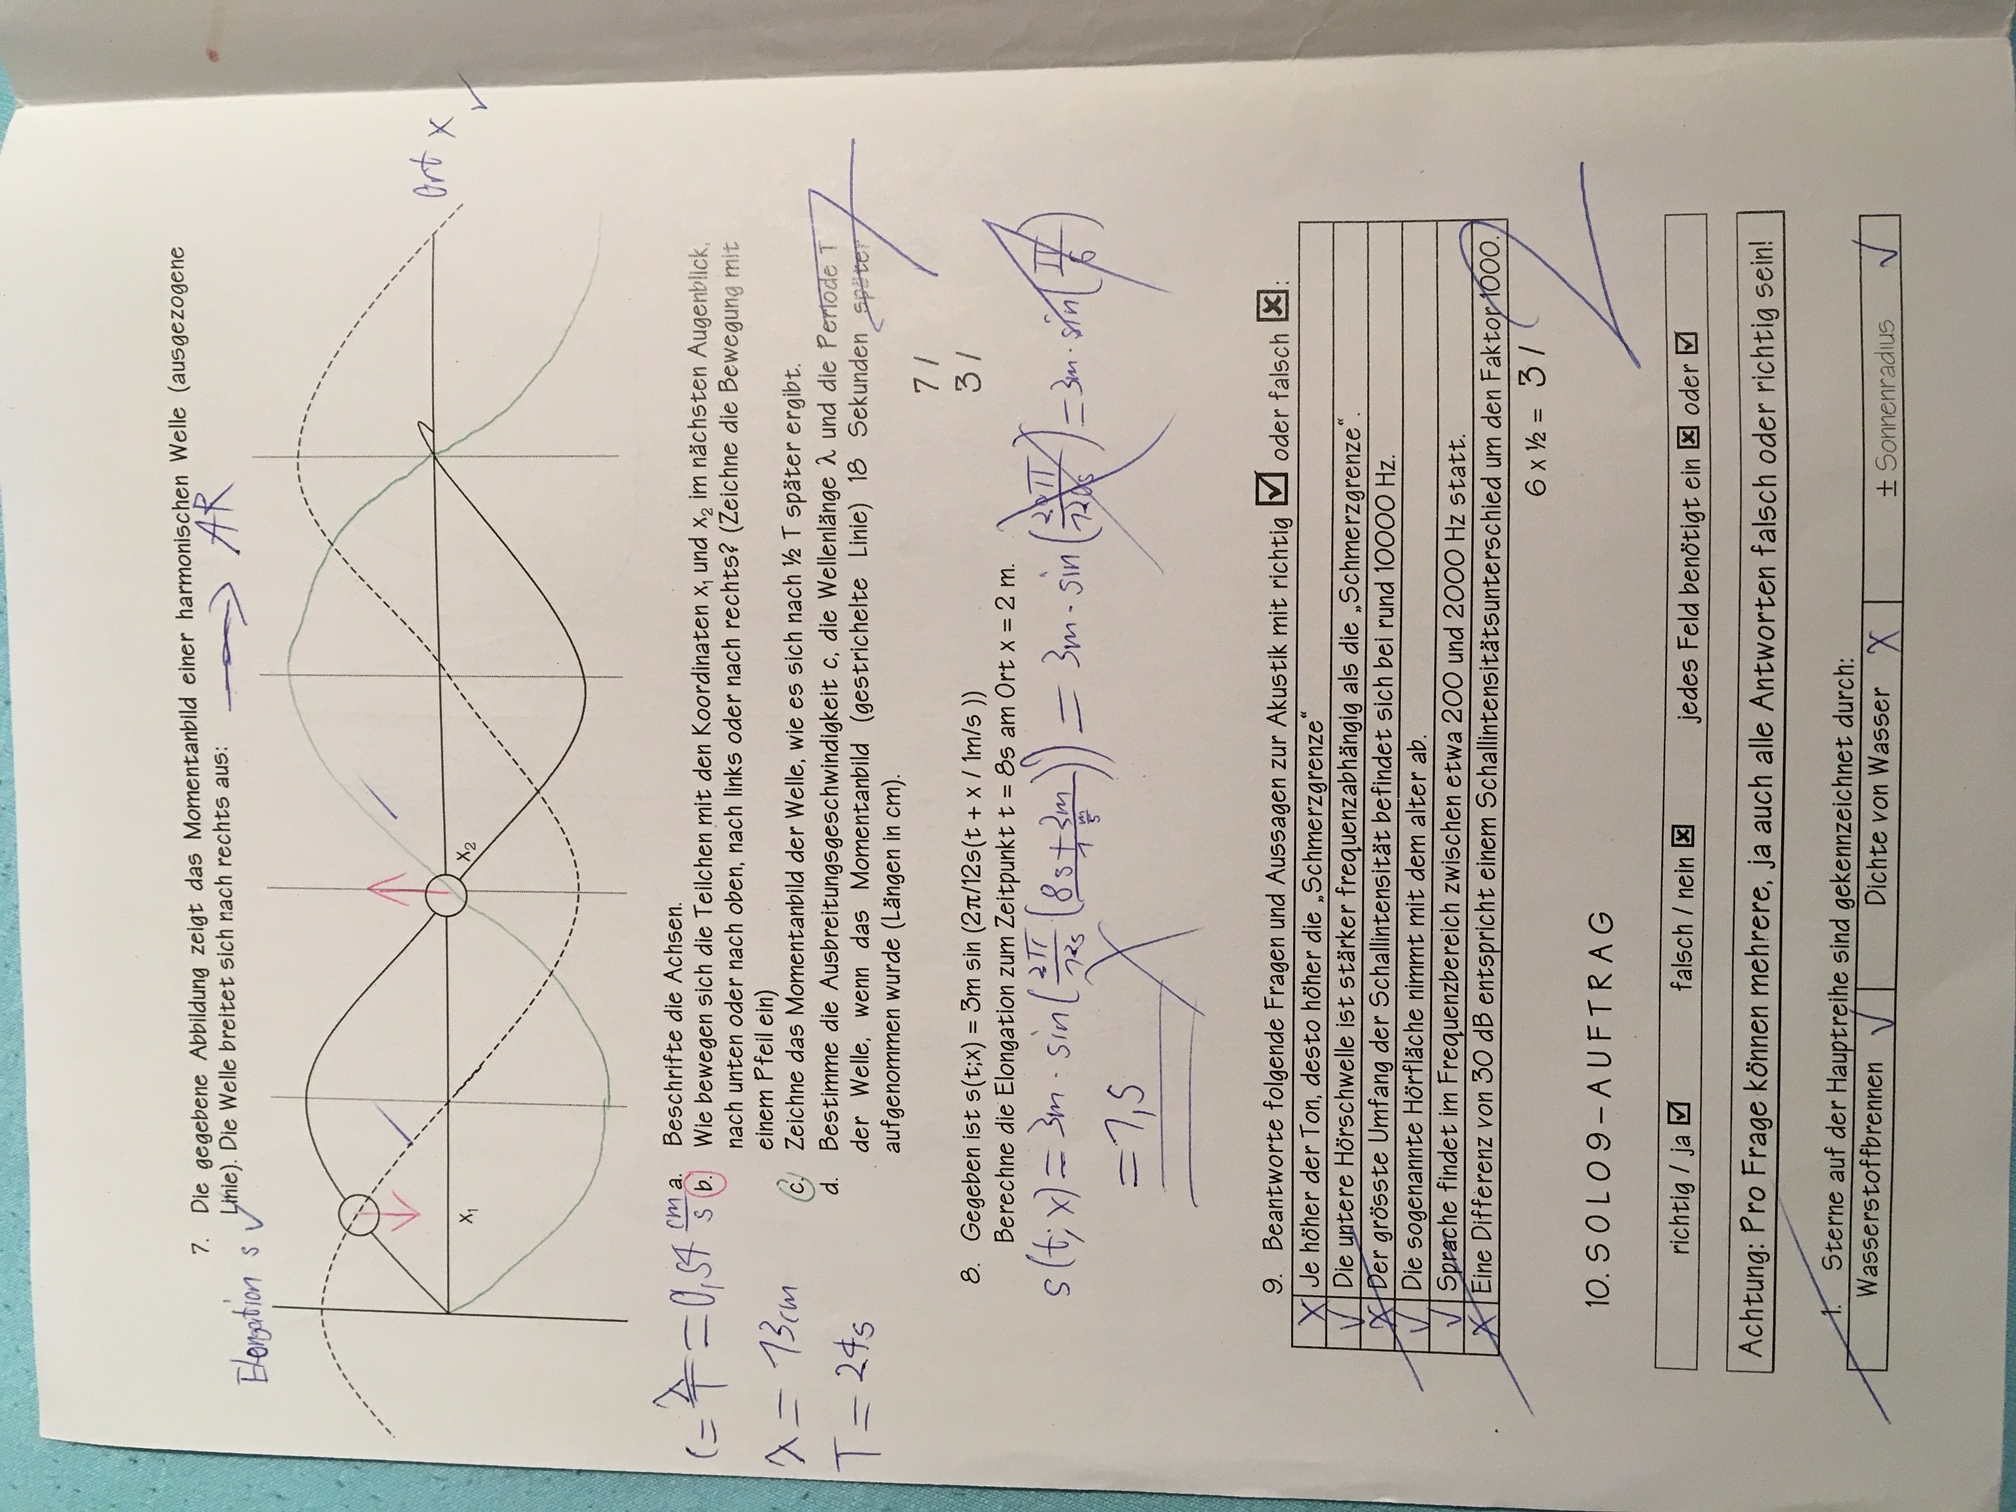 7. Die gegebene Abbildung zeigt das Momentanbild einer harmonischen Welle (ausgezogene
Linie). Die Welle breitet sich nach rechts aus: → AR
Elongation s ✓
x₁
x₂
Ort x ✓
c = λ/T = 0,54 cm/s
λ = 13cm
T = 24s
a. Beschrifte die Achsen.
b. Wie bewegen sich die Teilchen mit den Koordinaten x₁ und x₂ im nächsten Augenblick,
nach unten oder nach oben, nach links oder nach rechts? (Zeichne die Bewegung mit
einem Pfeil ein)
c. Zeichne das Momentanbild der Welle, wie es sich nach ½ T später ergibt.
d. Bestimme die Ausbreitungsgeschwindigkeit c, die Wellenlänge λ und die Periode T
der Welle, wenn das Momentanbild (gestrichelte Linie) 18 Sekunden später
aufgenommen wurde (Längen in cm).
7
7 /
8. Gegeben ist s(t;x) = 3m sin (2π/12s(t + x / 1m/s ))
3 /
Berechne die Elongation zum Zeitpunkt t = 8s am Ort x = 2 m.
s(t; x) = 3m · sin(2π/12s (8s+2m / 1 m/s)) = 3m · sin(20π/120s) = 3m · sin(π/6)
= 1,5
9. Beantworte folgende Fragen und Aussagen zur Akustik mit richtig ☑ oder falsch ☒:
X Je höher der Ton, desto höher die „Schmerzgrenze“
✓ Die untere Hörschwelle ist stärker frequenzabhängig als die „Schmerzgrenze“.
X Der grösste Umfang der Schallintensität befindet sich bei rund 10000 Hz.
✓ Die sogenannte Hörfläche nimmt mit dem alter ab.
✓ Sprache findet im Frequenzbereich zwischen etwa 200 und 2000 Hz statt.
X Eine Differenz von 30 dB entspricht einem Schallintensitätsunterschied um den Faktor 1000.
6 x ½ = 3 / 2
10. SOLO9–AUFTRAG
richtig / ja ☑ falsch / nein ☒ jedes Feld benötigt ein ☒ oder ☑
Achtung: Pro Frage können mehrere, ja auch alle Antworten falsch oder richtig sein!
1. Sterne auf der Hauptreihe sind gekennzeichnet durch:
Wasserstoffbrennen ✓ Dichte von Wasser X ± Sonnenradius ✓